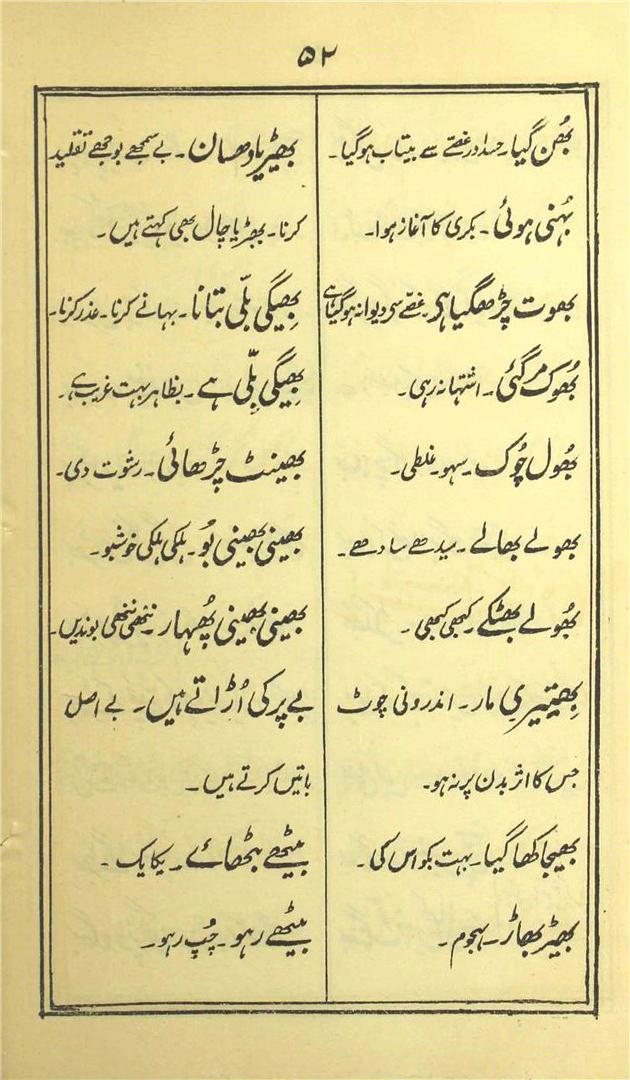 ۵۲
بھُن گیا۔ حسد اور غصّے سے بیتاب ہوگیا۔
بُہنی ہوئی۔ بکری کا آغاز ہوا۔
بھوت چڑھ گیا ہی۔ غصّے سی دیوانہ ہوگیا ہے
بھُوک مرگئی۔ اشتہا نہ رہی۔
بھُول چُوک۔ سہو۔ غلطی۔
بھولے بھالے۔ سیدھے سادھے۔
بھُولے بھٹکے۔ کبھی کبھی۔
بھِیتیری مار۔ اندرونی چوٹ
جس کا اثر بدن پر نہ ہو۔
بھیجا کھا گیا۔ بہت بکواس کی۔
بھیڑ بھاڑ۔ ہجوم۔
بھیڑیا دھسان۔ بے سمجھے بوجھے تقلید
کرنا۔ بھڑیا چال بھی کہتے ہیں۔
بھِیگی بلّی بتانا۔ بہانے کرنا۔ عذر کرنا۔
بھِیگی بِلّی ہے۔ بظاہر بہت غریب ہے۔
بھینٹ چڑھائی۔ رشوت دی۔
بھینی بھینی بُو۔ ہلکی ہلکی خوشبو۔
بھینی بھینی پھُہار۔ ننھی ننھی بوندیں۔
بے پر کی اُڑاتے ہیں۔ بے اصل
باتیں کرتے ہیں۔
بیٹھے بٹھائے۔ یکایک۔
بیٹھے رہو۔ چُپ رہو۔